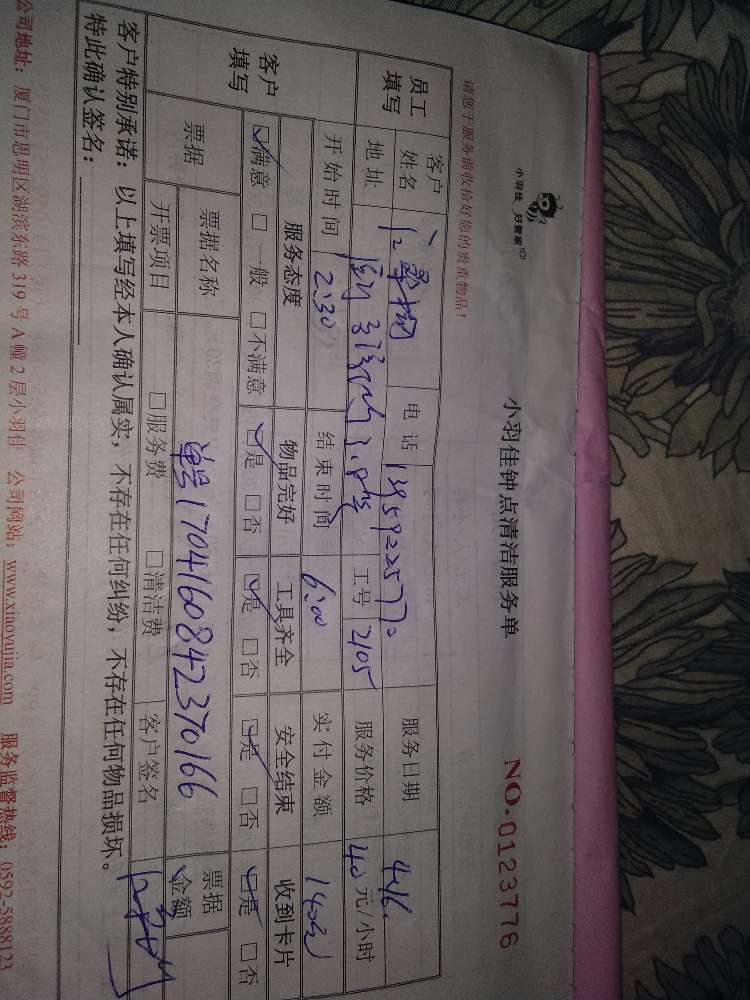 小羽佳 好管家
小羽佳钟点清洁服务单
NO.0123776
请您于服务前收拾好您的贵重物品！
员工填写
客户姓名
电话 13959222577
服务日期 4.16.
地址
工号 2105
服务价格 40元/小时
开始时间 2:30
结束时间 6:00
实付金额 140元
客户填写
服务态度 物品完好 工具齐全 安全结束 收到卡片
☑满意 □一般 □不满意 ☑是 □否 ☑是 □否 ☑是 □否 ☑是 □否
票据 票据名称 单号1704160842370166 票据金额
开票项目 □服务费 □清洁费 客户签名
客户特别承诺：以上填写经本人确认属实，不存在任何纠纷，不存在任何物品损坏。
特此确认签名：
公司地址：厦门市思明区湖滨东路319号A幢2层小羽佳 公司网站：www.xiaoyujia.com 服务监督热线：0592-5888123